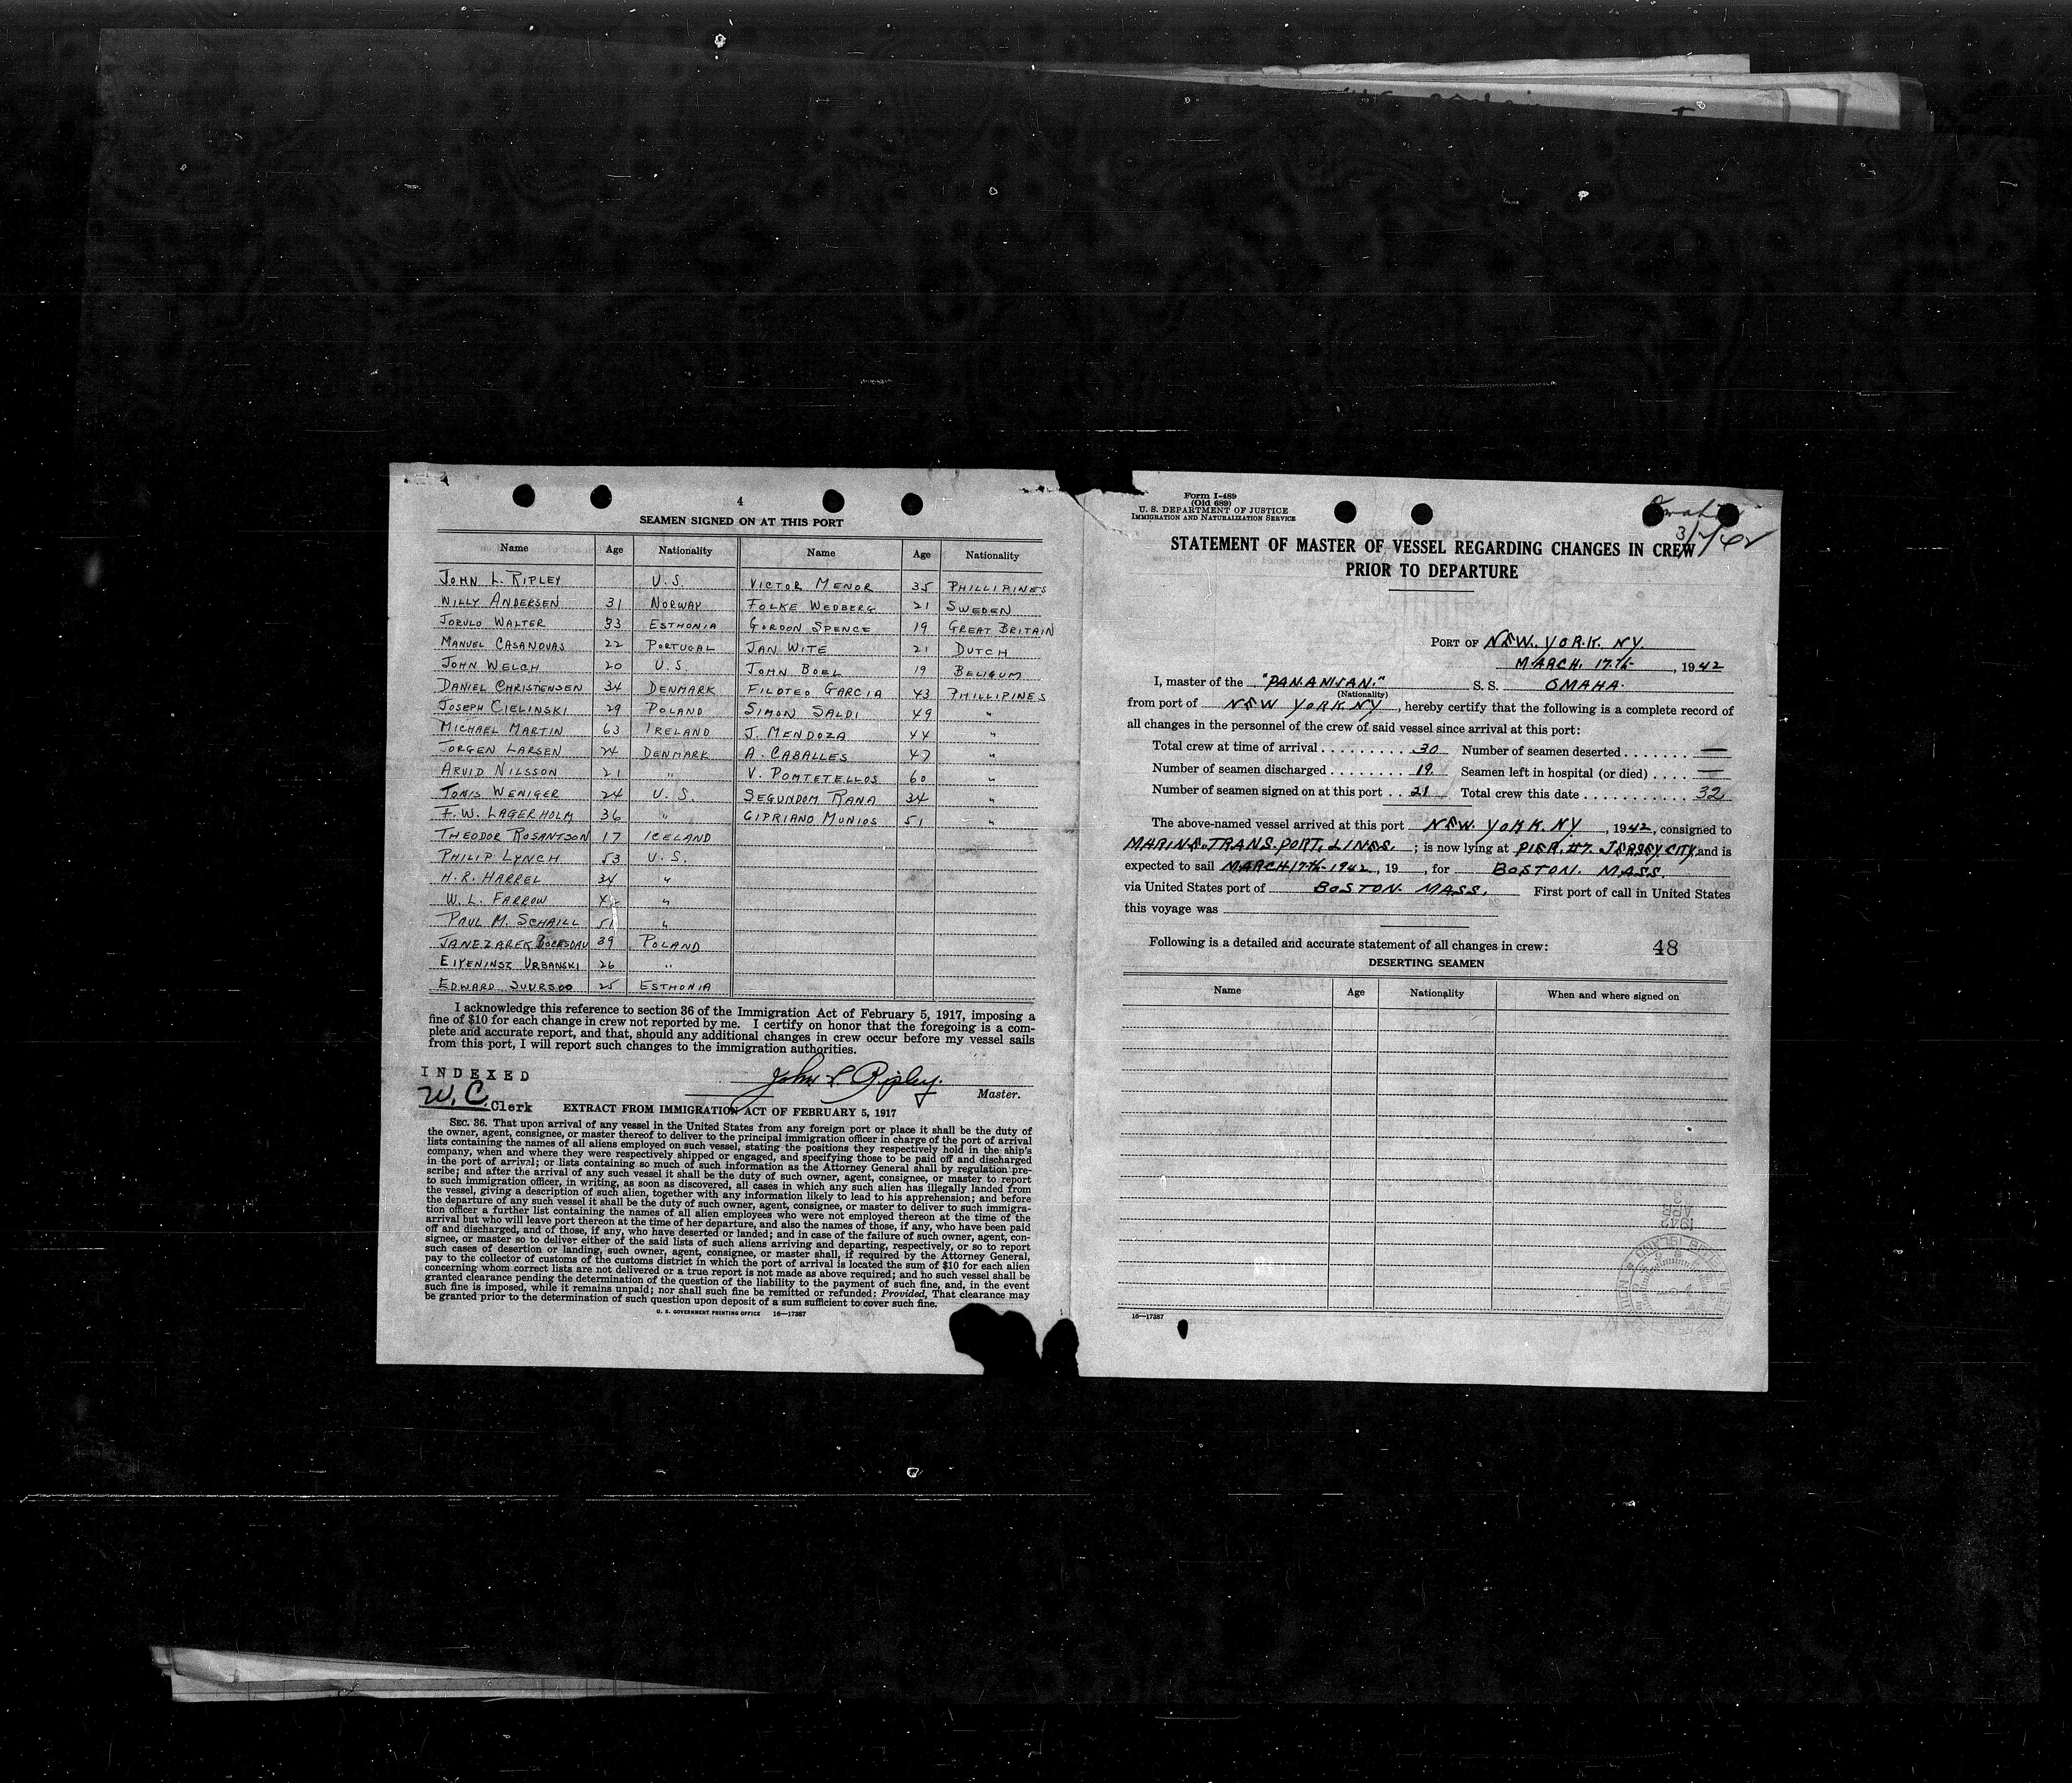 4
SEAMEN SIGNED ON AT THIS PORT
Name Age Nationality Name Age Nationality
JOHN L. RIPLEY U.S. VICTOR MENOR 35 PHILLIPINES
WILLY ANDERSEN 31 NORWAY FOLKE WEDBERG 21 SWEDEN
JORULO WALTER 33 ESTHONIA GORDON SPENCE 19 GREAT BRITAIN
MANUEL CASANOVAS 22 PORTUGAL JAN WITE 21 DUTCH
JOHN WELCH 20 U.S. JOHN BOEL 19 BELIGUM
DANIEL CHRISTENSEN 34 DENMARK FILOTEO GARCIA 43 PHILLIPINES
JOSEPH CIELINSKI 29 POLAND SIMON SALDI 49 "
MICHAEL MARTIN 63 IRELAND J. MENDOZA 44 "
JORGEN LARSEN 24 DENMARK A. CABALLES 47 "
ARVID NILSSON 21 " V. PONTETELLOS 60 "
TONIS WENIGER 24 U.S. SEGUNDOM RANA 34 "
F.W. LAGERHOLM 36 " CIPRIANO MUNIOS 51 "
THEODOR ROSANTSON 17 ICELAND
PHILIP LYNCH 53 U.S.
H.R. HARREL 34 "
W.L. FARROW "
PAUL M. SCHAILL 51 "
JANEZAREK 39 POLAND
EIYENINSZ URBANSKI 26 "
EDWARD SUURSOO 25 ESTHONIA
I acknowledge this reference to section 36 of the Immigration Act of February 5, 1917, imposing a
fine of $10 for each change in crew not reported by me. I certify on honor that the foregoing is a com-
plete and accurate report, and that, should any additional changes in crew occur before my vessel sails
from this port, I will report such changes to the immigration authorities.
INDEXED
John L Ripley.
Master.
W.C. Clerk
EXTRACT FROM IMMIGRATION ACT OF FEBRUARY 5, 1917
SEC. 36. That upon arrival of any vessel in the United States from any foreign port or place it shall be the duty of
the owner, agent, consignee, or master thereof to deliver to the principal immigration officer in charge of the port of arrival
lists containing the names of all aliens employed on such vessel, stating the positions they respectively hold in the ship's
company, when and where they were respectively shipped or engaged, and specifying those to be paid off and discharged
in the port of arrival; or lists containing so much of such information as the Attorney General shall by regulation pre-
scribe; and after the arrival of any such vessel it shall be the duty of such owner, agent, consignee, or master to report
to such immigration officer, in writing, as soon as discovered, all cases in which any such alien has illegally landed from
the vessel, giving a description of such alien, together with any information likely to lead to his apprehension; and before
the departure of any such vessel it shall be the duty of such owner, agent, consignee, or master to deliver to such immigra-
tion officer a further list containing the names of all alien employees who were not employed thereon at the time of the
arrival but who will leave port thereon at the time of her departure, and also the names of those, if any, who have been paid
off and discharged, and of those, if any, who have deserted or landed; and in case of the failure of such owner, agent, con-
signee, or master so to deliver either of the said lists of such aliens arriving and departing, respectively, or so to report
such cases of desertion or landing, such owner, agent, consignee, or master shall, if required by the Attorney General,
pay to the collector of customs of the customs district in which the port of arrival is located the sum of $10 for each alien
concerning whom correct lists are not delivered or a true report is not made as above required; and no such vessel shall be
granted clearance pending the determination of the question of the liability to the payment of such fine, and, in the event
such fine is imposed, while it remains unpaid; nor shall such fine be remitted or refunded: Provided, That clearance may
be granted prior to the determination of such question upon deposit of a sum sufficient to cover such fine.
U. S. GOVERNMENT PRINTING OFFICE 16—17387
Form I-489
(Old 689)
U. S. DEPARTMENT OF JUSTICE
IMMIGRATION AND NATURALIZATION SERVICE
Omaha
STATEMENT OF MASTER OF VESSEL REGARDING CHANGES IN CREW
PRIOR TO DEPARTURE
PORT OF NEW YORK. NY.
MARCH. 17th, 1942
I, master of the "PANANIAN." S. S. OMAHA.
(Nationality)
from port of NEW YORK NY, hereby certify that the following is a complete record of
all changes in the personnel of the crew of said vessel since arrival at this port:
Total crew at time of arrival 30 Number of seamen deserted —
Number of seamen discharged 19. Seamen left in hospital (or died) —
Number of seamen signed on at this port 21 Total crew this date 32
The above-named vessel arrived at this port NEW. YORK. NY, 1942, consigned to
MARINE TRANSPORT LINES. ; is now lying at PIER. #7. JERSEY CITY, and is
expected to sail MARCH 17th 1942, 19 , for BOSTON. MASS.
via United States port of BOSTON. MASS. First port of call in United States
this voyage was
Following is a detailed and accurate statement of all changes in crew: 48
DESERTING SEAMEN
Name Age Nationality When and where signed on
1942
APR
16—17387